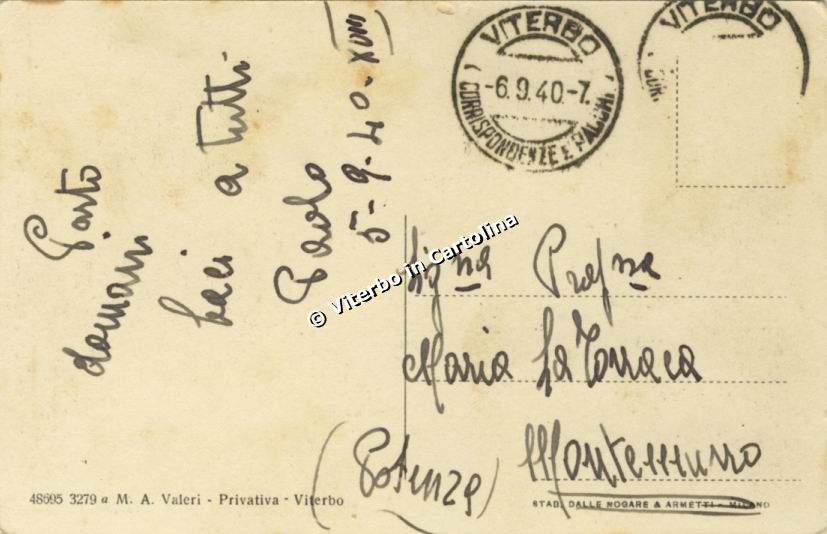 Parto
domani
baci a tutti
Paolo
5-9-40-XVIII
VITERBO
-6.9.40-7.
CORRISPONDENZE E PACCHI
VITERBO
COR
© Viterbo in Cartolina
Sig.na Prof.na
Maria La Torraca
Montemurro
(Potenza)
48695 3279 a M. A. Valeri - Privativa - Viterbo
STAB. DALLE NOGARE & ARMETTI - MILANO